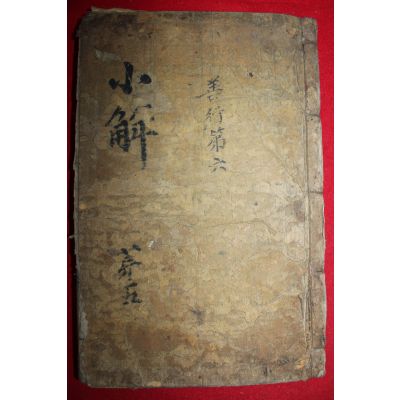 善行第六
小解